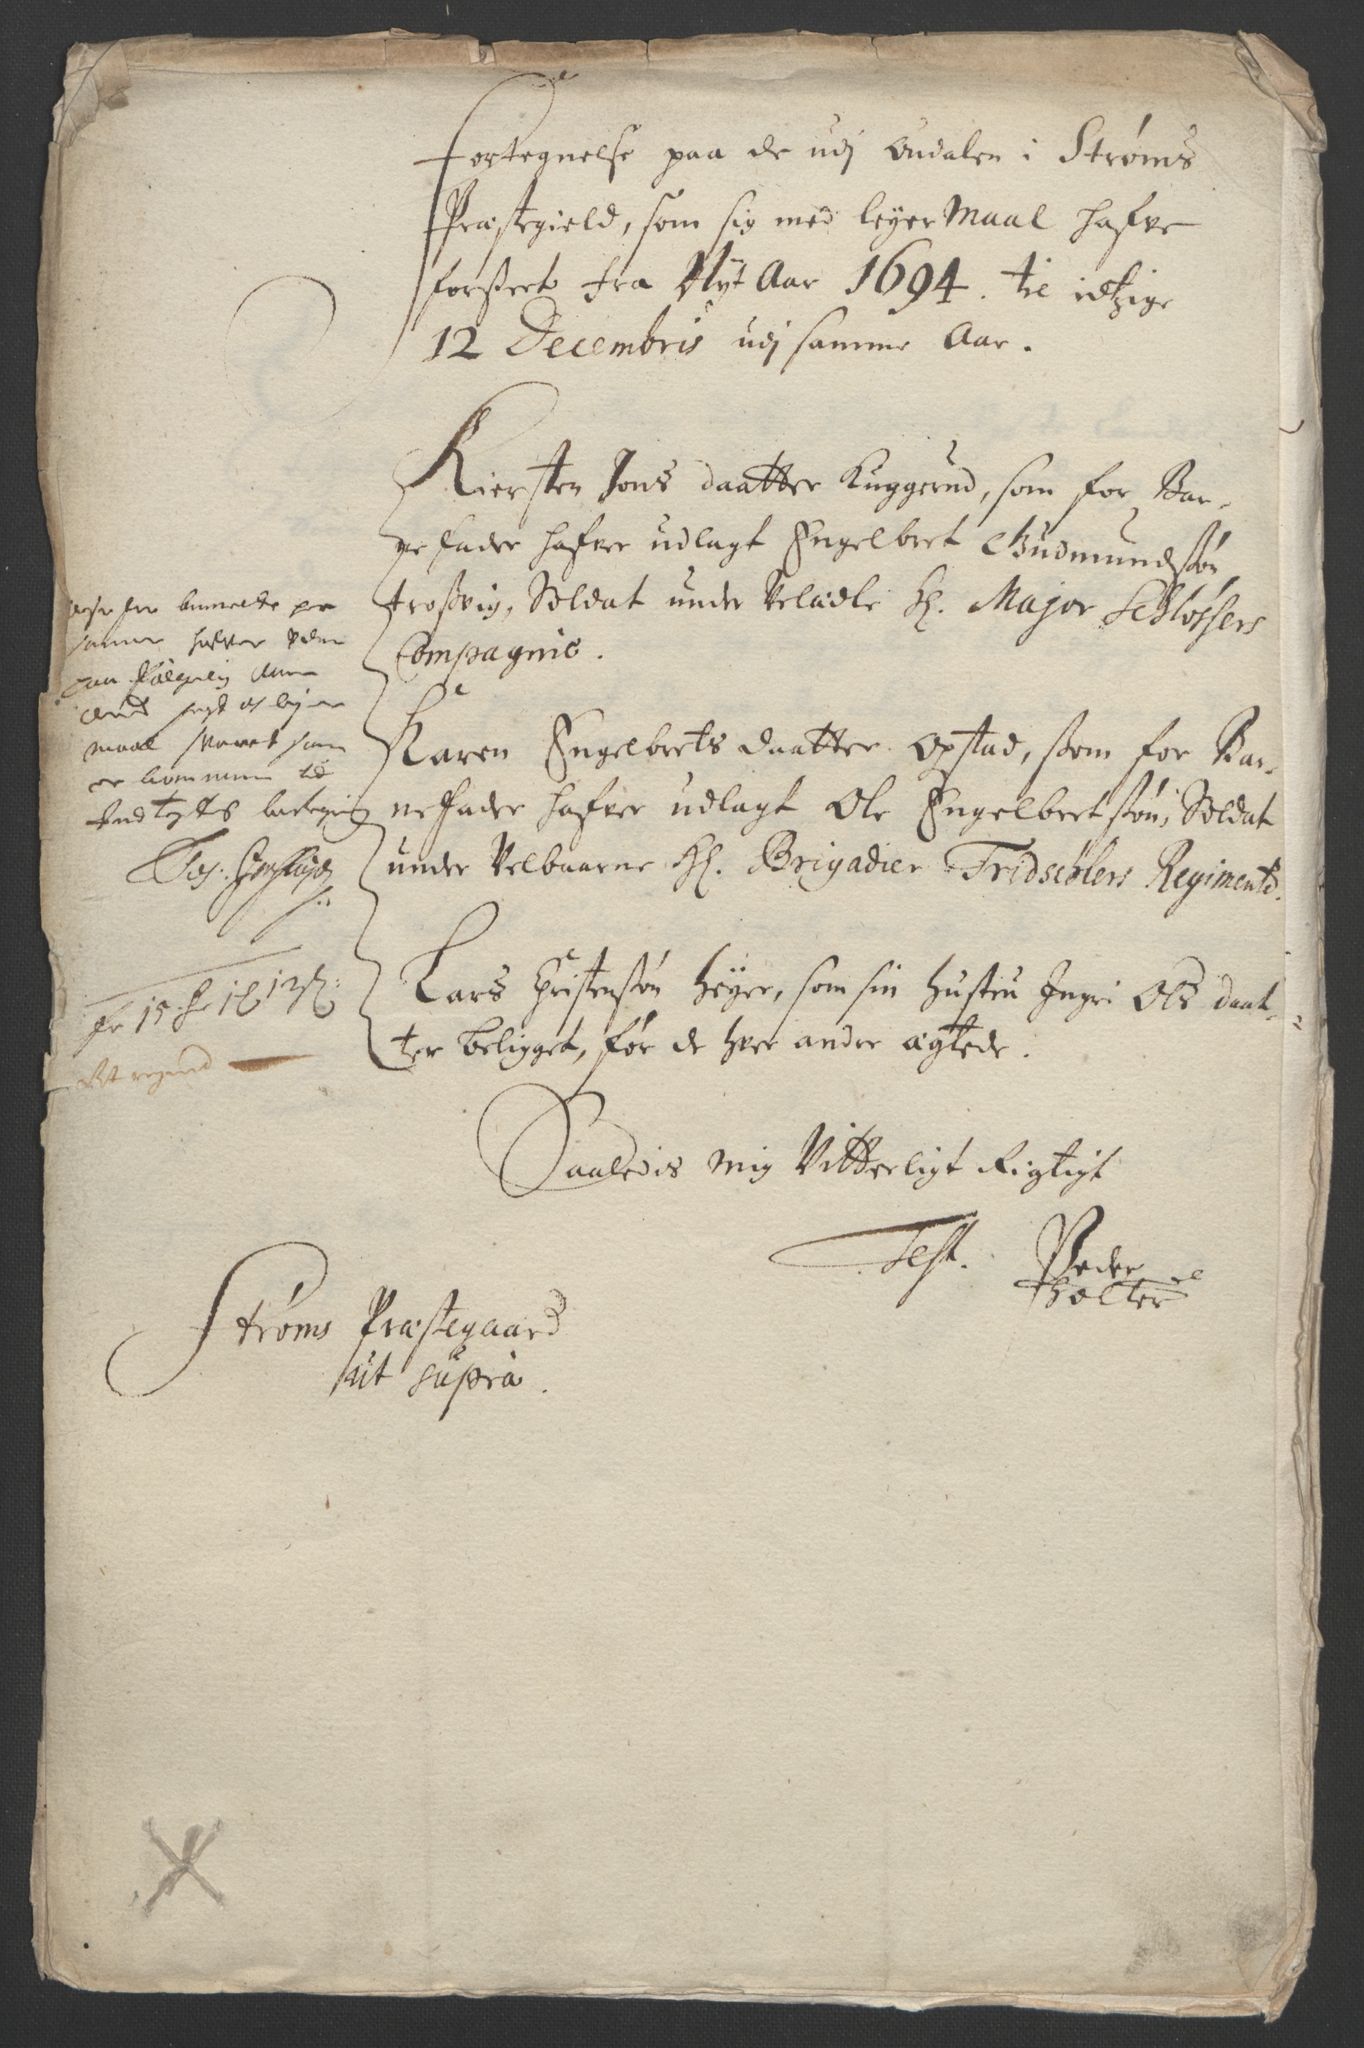 Fortegnelse paa de udj Oudalen i Strøms
Præstegield, som sig med leyer Maal hafve
forseet fra Nyt Aar 1694. til idtzige
12 Decembris udj samme Aar.
Kiersten Jons daatter Kuggerud, som for Bar-
ne fader hafver udlagt Engelbret Gudmundsøn
trosvig, Soldat under Velædle H. Major Schlossers
Compagnie.
Karen Engelbrets daatter Opstad, som for Bar-
nefader hafver udlagt Ole Engelbretsøn, Soldat
under Velbaarne H. Brigadier Tridschlers Regimente.
Lars Christensøn Heyer, som sin hustru Ingri Ols daat-
ter beligget, før de hver andre ægtede.
Saaledis mig Vitterligt Rigtigt
Test. Peder
Holter
Strøms Præstegaard
ut supra.
hafver
maal som
er kommen til
12